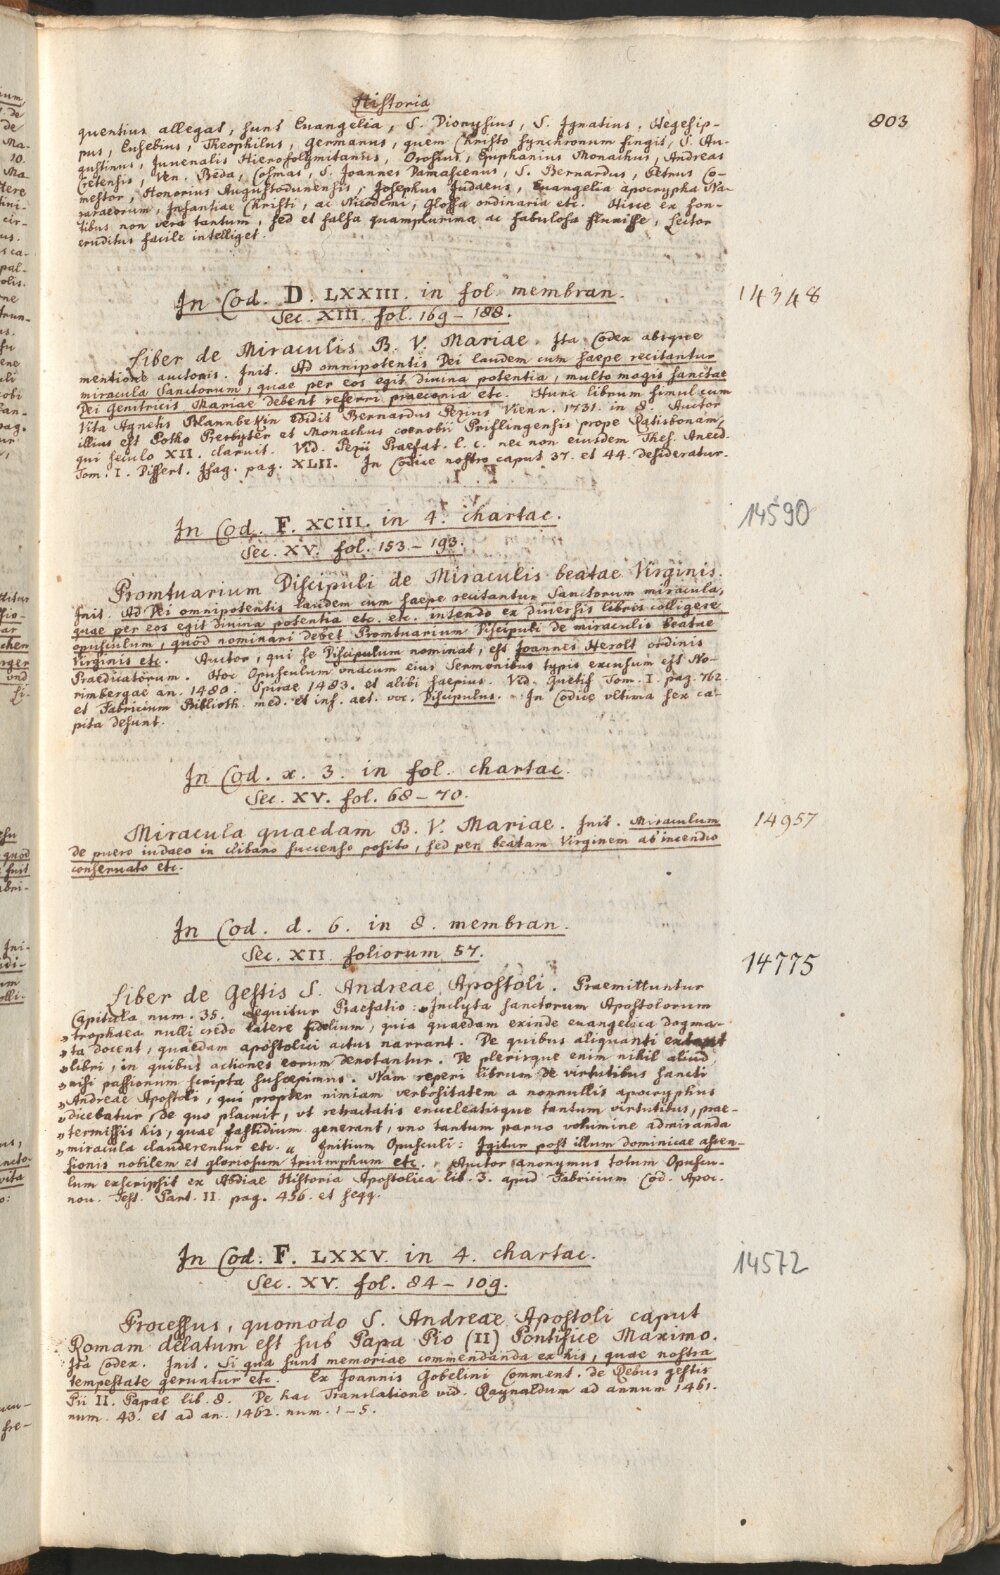 Historia
803
quentius allegat, sunt Euangelia, S. Dionysius, S. Ignatius, Hegesip-
pus, Eusebius, Theophilus, Germanus, quem Christo synchronum fingit, S. Au-
gustinus, Iuuenalis Hierosolymitanus, Orosius, Epiphanius Monachus, Andreas
Cretensis, Ven. Beda, Cosmas, S. Joannes Damascenus, S. Bernardus, Petrus Co-
mestor, Honorius Augustodunensis, Josephus Judaeus, Euangelia apocrypha Na-
zaraeorum, Infantiae Christi, ac Nicodemi, Glossa ordinaria etc. Hisce ex fon-
tibus non vera tantum, sed et falsa quamplurima ac fabulosa fluxisse, Lector
eruditus facile intelliget.
In Cod. D. LXXIII. in fol. membran.
14348
Sec. XIII. fol. 169-188.
Liber de Miraculis B. V. Mariae. Ita Codex absque
mentione auctoris. Init. Ad omnipotentis Dei laudem cum saepe recitantur
miracula Sanctorum, quae per eos egit diuina potentia, multo magis sanctae
Dei genitricis Mariae debent referri praeconia etc. Hunc librum simul cum
Vita Agnetis Blannbekin edidit Bernardus Pezius Vienn. 1731. in 8. Auctor
illius est Potho Presbyter et Monachus coenobii Priflingensis prope Ratisbonam,
qui seculo XII. claruit. Vid. Pezii Praefat. l. c. nec non eiusdem Thes. Anecd.
Tom. I. Dissert. Isag. pag. XLII. In Codice nostro caput 37. et 44. desideratur.
In Cod. F. XCIII. in 4. chartac.
14590
Sec. XV. fol. 153-193.
Promtuarium Discipuli de Miraculis beatae Virginis.
Init. Ad Dei omnipotentis laudem cum saepe recitantur Sanctorum miracula,
quae per eos egit diuina potentia etc. etc. intendo ex diuersis libris colligere
opusculum, quod nominari debet Promtuarium Discipuli de miraculis beatae
Virginis etc. Auctor, qui se Discipulum nominat, est Joannes Herolt ordinis
Praedicatorum. Hoc Opusculum vnacum eius Sermonibus typis excusum est No-
rimbergae an. 1480. Spirae 1483. et alibi saepius. Vid. Quetif Tom. I. pag. 762.
et Fabricium Biblioth. med. et inf. aet. voc. Discipulus. In Codice vltima sex ca-
pita desunt.
In Cod. x. 3. in fol. chartac.
Sec. XV. fol. 68-70.
Miracula quaedam B. V. Mariae. Init. Miraculum
14957
de puero iudaeo in clibano succenso posito, sed per beatam Virginem ab incendio
conseruato etc.
In Cod. d. 6. in 8. membran.
Sec. XII. foliorum 57.
14775
Liber de Gestis S. Andreae Apostoli. Praemittuntur
Capitula num. 35. Sequitur Praefatio: „Inclyta sanctorum Apostolorum
„trophaea nulli credo latere fidelium, quia quaedam exinde euangelica dogma-
„ta docent, quaedam apostolici actus narrant. De quibus aliquanti extant
„libri, in quibus actiones eorum denotantur. De plerisque enim nihil aliud
„nisi passionum scripta suscepimus. Nam reperi librum de virtutibus sancti
„Andreae Apostoli, qui propter nimiam verbositatem a nonnullis apocryphus
„dicebatur, de quo placuit, vt retractatis enucleatisque tantum virtutibus, prae-
„termissis his, quae fastidium generant, vno tantum paruo volumine admiranda
„miracula clauderentur etc.„ Initium Opusculi: Igitur post illum dominicae ascen-
sionis nobilem et gloriosum triumphum etc. Auctor anonymus totum Opuscu-
lum exscripsit ex Abdiae Historia Apostolica lib. 3. apud Fabricium Cod. Apoc.
nou. Test. Part. II. pag. 456. et seqq.
In Cod. F. LXXV. in 4. chartac.
14572
Sec. XV. fol. 84-109.
Processus, quomodo S. Andreae Apostoli caput
Romam delatum est sub Papa Pio (II) Pontifice Maximo.
Ita Codex. Init. Si qua sunt memoriae commendanda ex his, quae nostra
tempestate geruntur etc. Ex Joannis Gobelini Comment. de Rebus gestis
Pii II. Papae lib. 8. De hac Translatione vid. Raynaldum ad annum 1461.
num. 43. et ad an. 1462. num. 1-5.